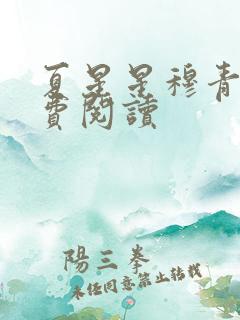 夏星星穆青
費閱讀
陽三拳
未任同意禁止轉載